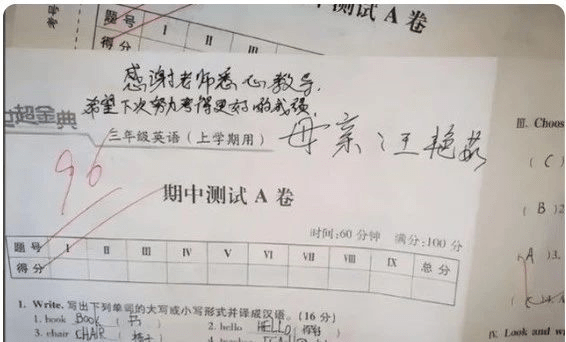 测试 A 卷
题号 I II III
得分
感谢老师悉心教导,
希望下次努力考得更好
三年级英语(上学期用)
母亲汪艳茹
96
期中测试 A 卷
时间:60 分钟 满分:100 分
题号 I II III IV V VI VII VIII IX 总分
得分
I. Write. 写出下列单词的大写或小写形式并译成汉语。(16 分)
1. book BOOK ( 书 )
2. hello HELLO (
3. chair CHAIR ( 椅子 )
III. Choos
( C )
( B )2
( A )3.
IV. Look and w